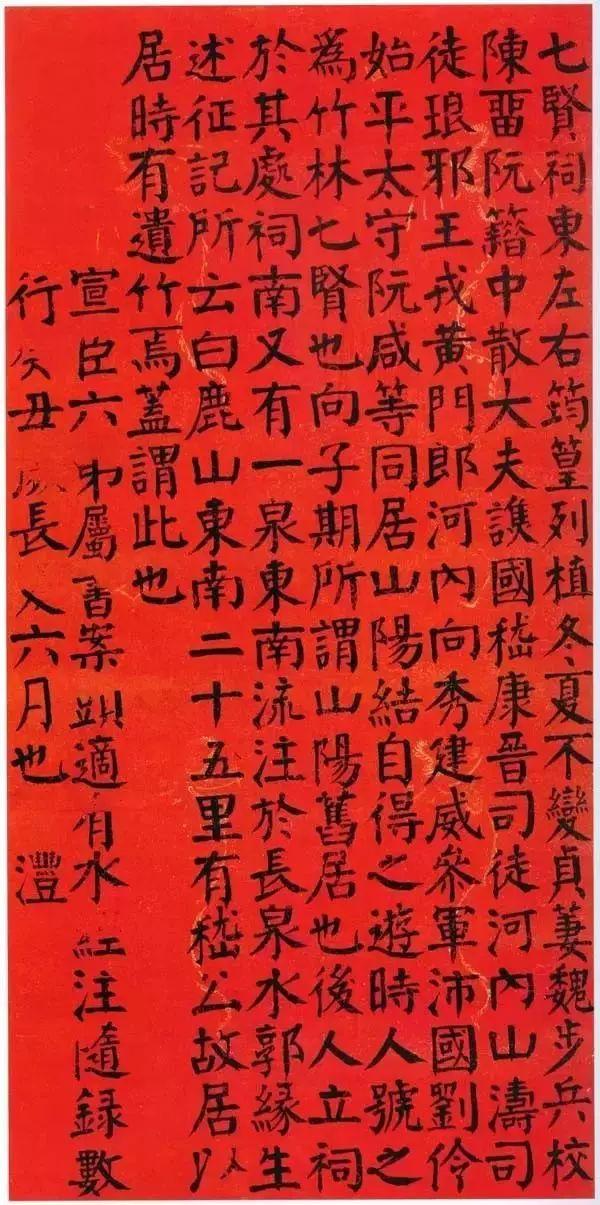 七賢祠東左右筠篁列植冬夏不變貞萋魏步兵校
陳畱阮籍中散大夫譙國嵇康晉司徒河內山濤司
徒琅邪王戎黃門郎河內向秀建威參軍沛國劉伶
始平太守阮咸等同居山陽結自得之遊時人號之
為竹林七賢也向子期所謂山陽舊居也後人立祠
於其處祠南又有一泉東南流注於長泉水郭緣生
述征記所云白鹿山東南二十五里有嵇公故居以
居時有遺竹焉蓋謂此也
宣臣六弟屬書案適有水注隨錄數
行癸丑長六月也 澧